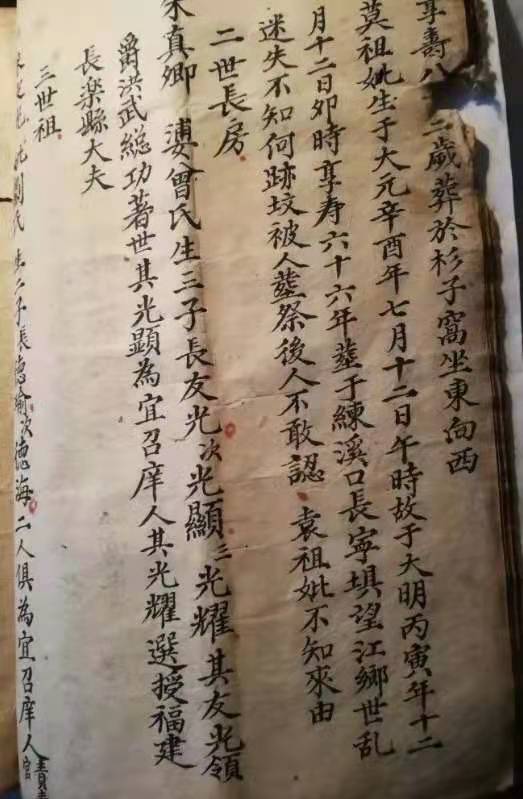 享壽八二歲葬於杉子窩坐東向西
莫祖妣生于大元辛酉年七月十二日午時故于大明丙寅年十二
月十二日卯時享寿六十六年塟于練溪口長寧埧望江鄉世乱
迷失不知何跡坟被人塟祭後人不敢認 袁祖妣不知來由
二世長房
宋真卿 婆曾氏生三子長友光次光顯三光耀其友光領
爵洪武総功著世其光顯為宜召庠人其光耀選授福建
長楽縣大夫
三世祖
氏生二子長德瑜次德海二人俱為宜召庠人